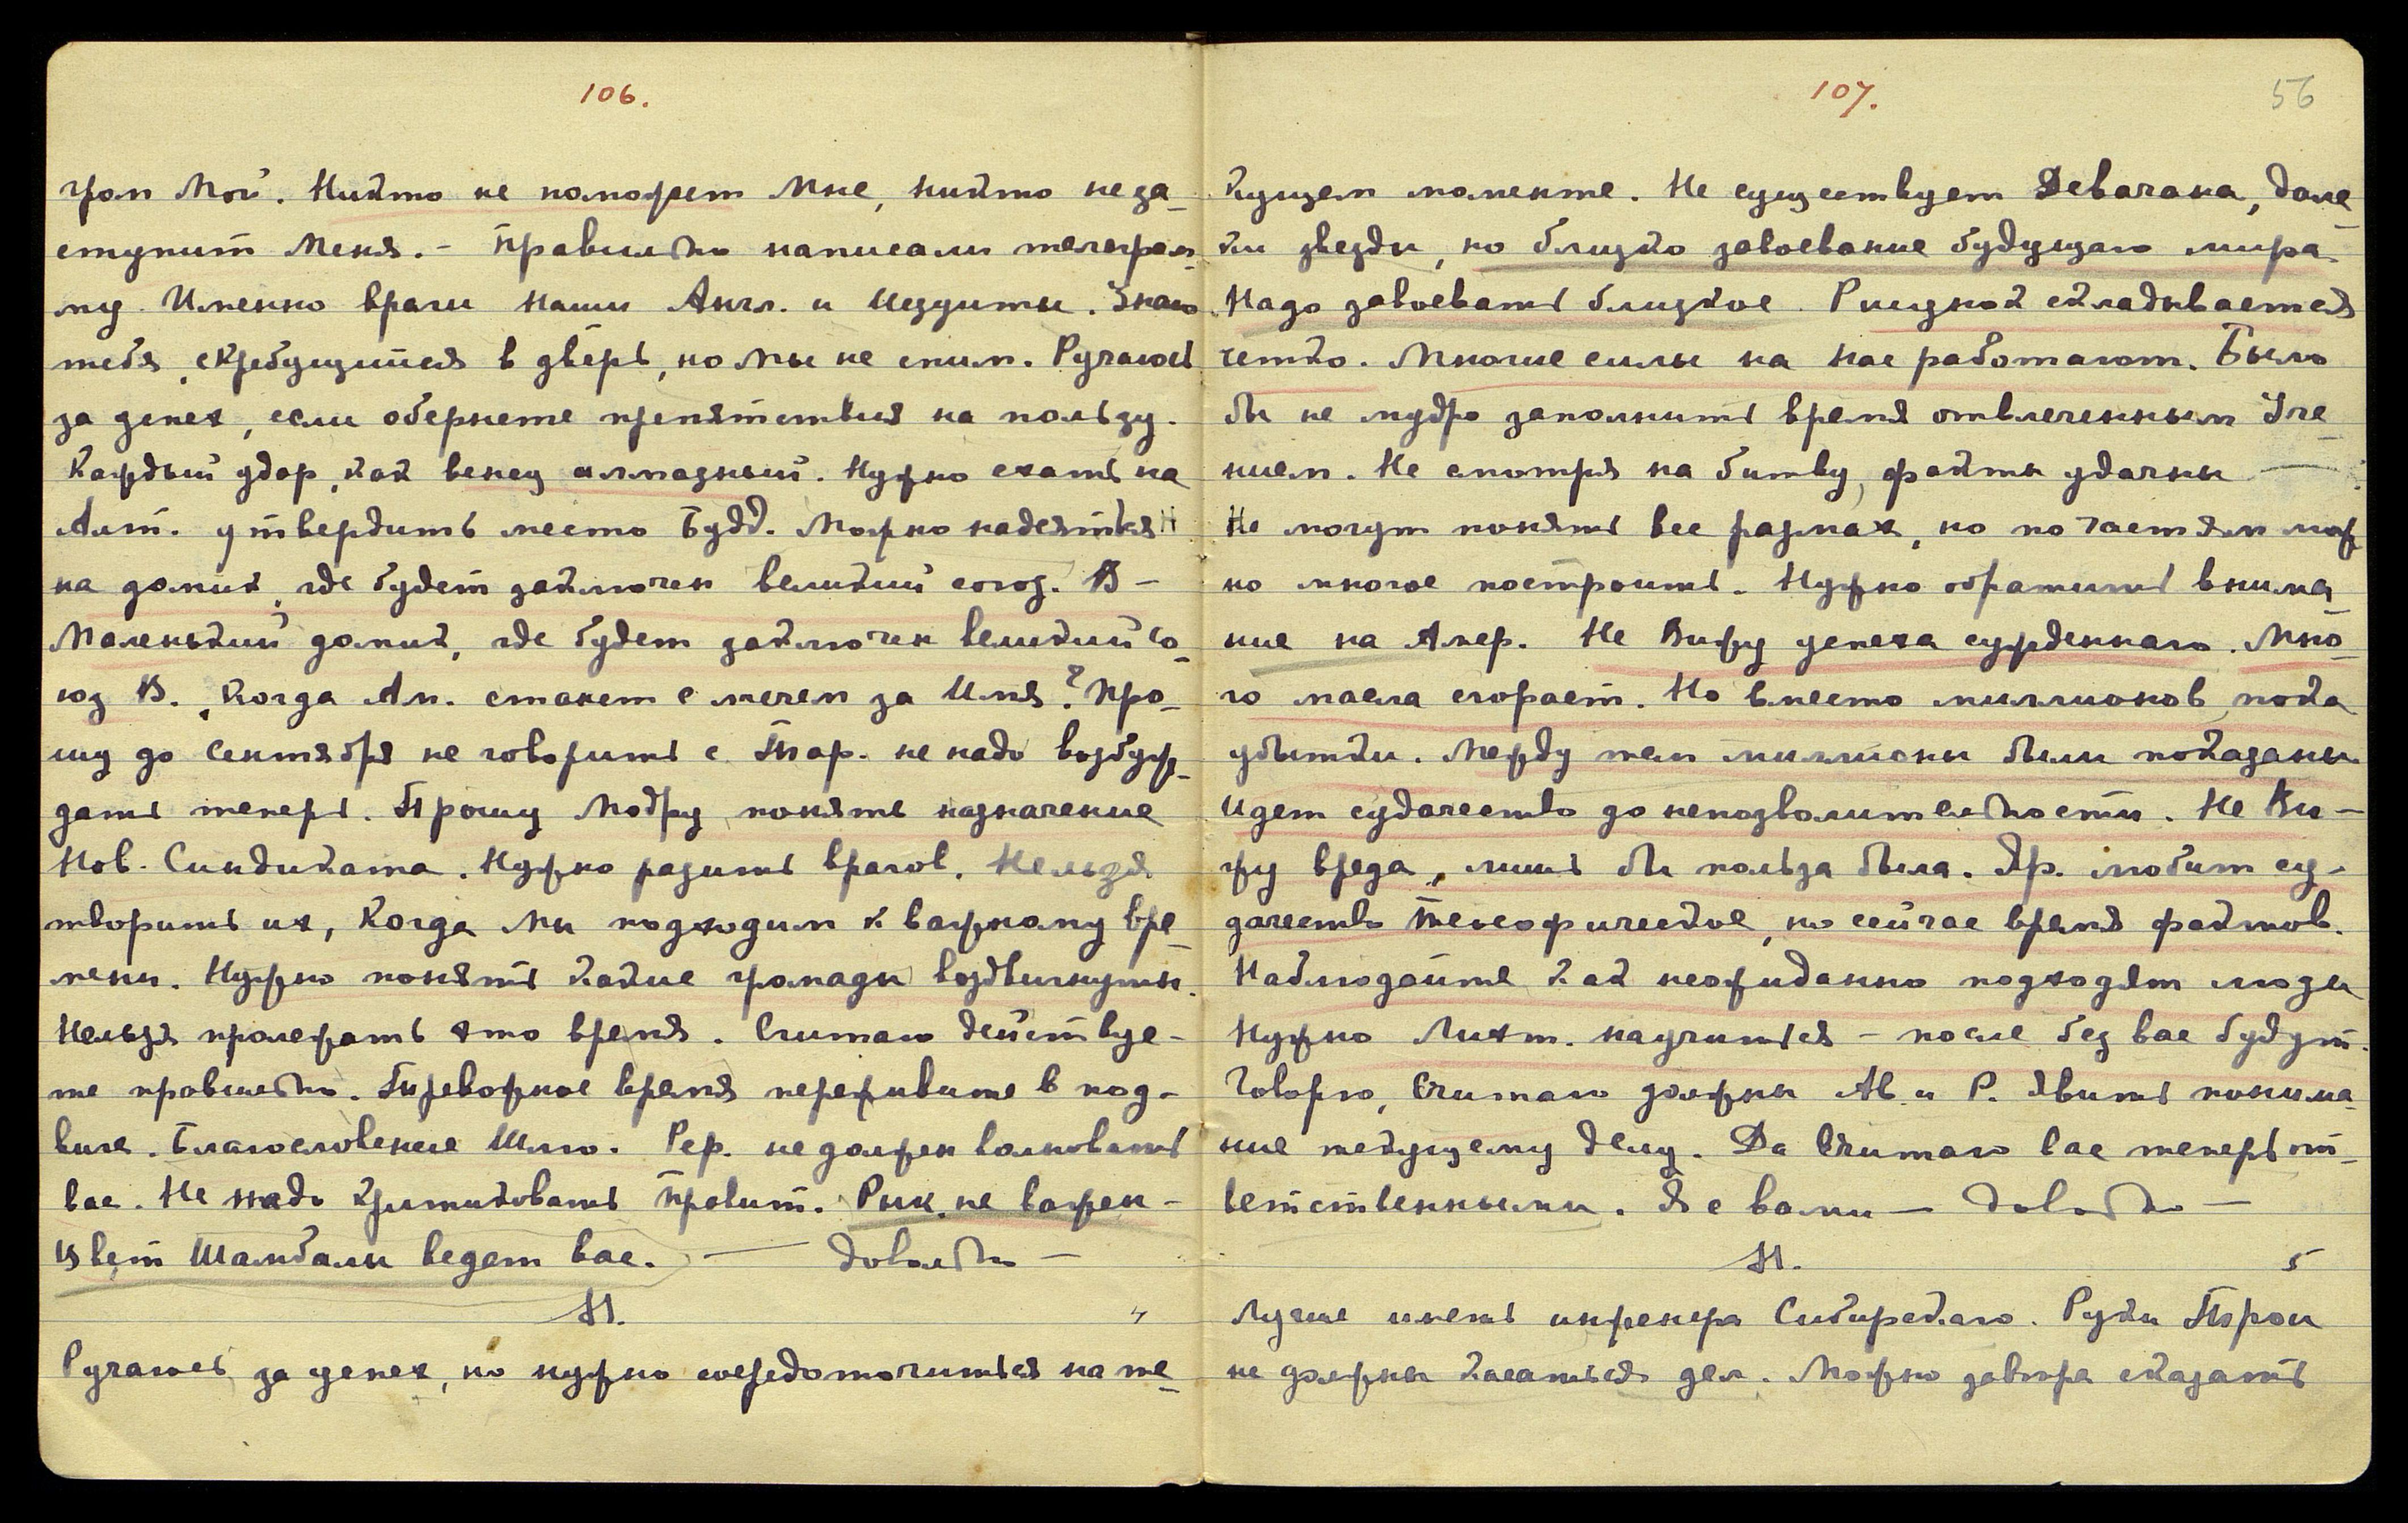 106.
гром Мой. Никто не поможет Мне, никто не за-
ступит Меня. – Правильно написали телеграм-
му. Именно враги наши Англ. и Иезуиты. Знаю
тебя, скребущийся в дверь, но Мы не спим. Ручаюсь
за успех, если обернете препятствия на пользу.
Каждый удар, как венец алмазный. Нужно ехать на
Алт. утвердить место Будд. Можно надеяться
на домик, где будет заключен великий союз. В –
Маленький домик, где будет заключен великий со-
юз В. Когда Ам. станет с мечем за Имя? Про-
шу до Сентября не говорить с Тар. не надо возбуж-
дать теперь. Прошу Модру понять назначение
Нов. Синдиката. Нужно разить врагов. Нельзя
творить их, когда Мы подходим к важному вре-
мени. Нужно понять какие громады воздвигнуты.
Нельзя пролежать это время. Считаю действуе-
те правильно. Тревожное время переживите в под-
виге. Благословение Шлю. Рер. не должен волновать
вас. Не надо критиковать Правит. Рын. не важен –
Свет Шамбалы ведет вас. — Довольно —
И. 4
Ручаюсь за успех, но нужно сосредоточиться на те-
107.
56
кущем моменте. Не существует Девачана, дале-
ки звезды, но близко завоевание будущаго мира.
Надо завоевать близкое. Рисунок складывается
четко. Многие силы на нас работают. Было
бы не мудро заполнить время отвлеченным Уче-
нием. Не смотря на битву, факты удачны —
Не могут понять все размах, но по частям мож-
но многое построить. Нужно обратить внима-
ние на Амер. Не Вижу успеха сужденнаго. Мно-
го масла сгорает. Но вместо миллионов пока
убытки. Между тем миллионы были показаны.
Идет судачество до непозволительности. Не Ви-
жу вреда, лишь бы польза была. Др. любит су-
дачество теософическое, но сейчас время фактов.
Наблюдайте как неожиданно подходят люди
Нужно Лихт. научиться – после без вас будут.
Говорю, Считаю должны Ав. и Р. явить понима-
ние текущему делу. Да Считаю вас теперь от-
ветственными. Я с вами — Довольно —
И. 5
Лучше иметь инженера Сибирскаго. Руки Трои
не должны касаться дел. Можно завтра сказать